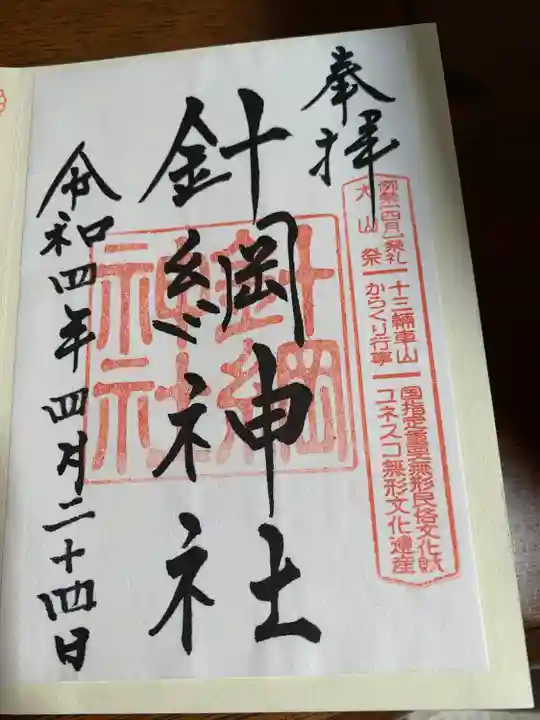 奉拝
例祭(四月)祭礼
犬山祭
十三輛車山
からくり行事
国指定重要無形民俗文化財
ユネスコ無形文化遺産
針綱神社
針綱
神社
令和四年四月二十四日